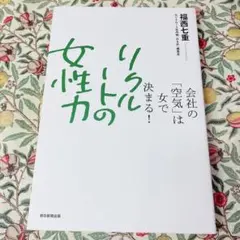 福西七重
リクルートの
女性力
会社の
「空気」は
女で
決まる!
朝日新聞出版